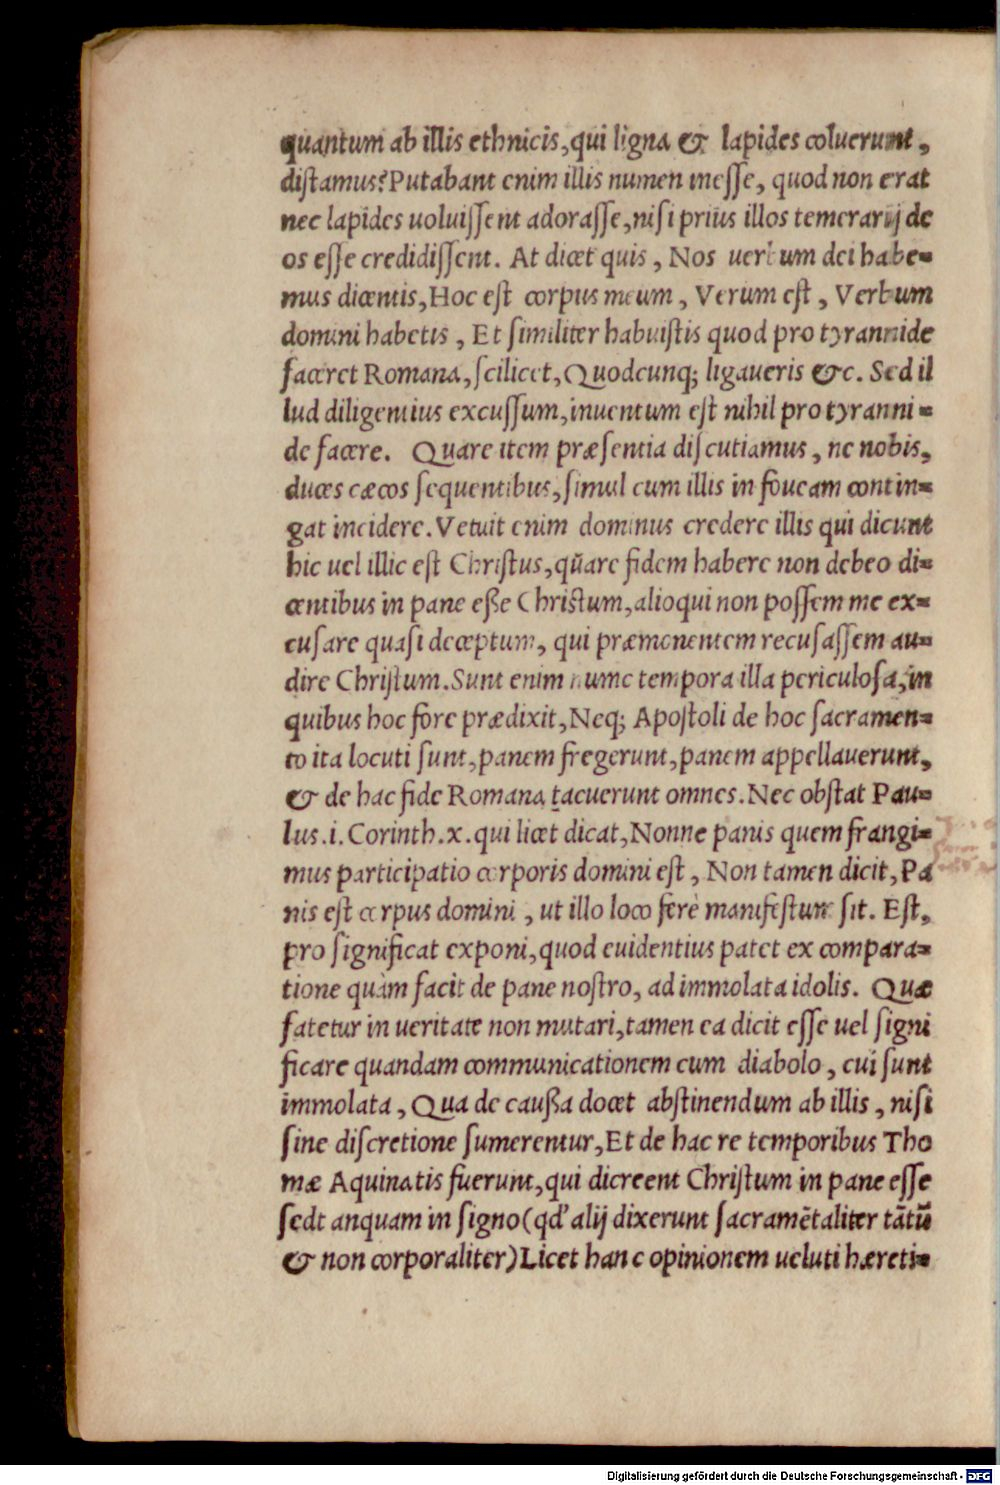 quantum ab illis ethnicis,qui ligna & lapides coluerunt,
distamus?Putabant enim illis numen inesse, quod non erat
nec lapides uoluissent adorasse,nisi prius illos temerarij de
os esse credidissent. At dicet quis, Nos uerbum dei habe=
mus dicentis,Hoc est corpus meum, Verum est, Verbum
domini habetis, Et similiter habuistis quod pro tyrannide
faceret Romana,scilicet,Quodcunq; ligaueris &c. Sed il
lud diligentius excussum,inuentum est nihil pro tyranni=
de facere. Quare item præsentia discutiamus, ne nobis,
duces cæcos sequentibus,simul cum illis in foueam contin=
gat incidere.Vetuit enim dominus credere illis qui dicunt
hic uel illic est Christus,quare fidem habere non debeo di=
centibus in pane eße Christum,alioqui non possem me ex=
cusare quasi deceptum, qui præmonentem recusassem au=
dire Christum.Sunt enim nunc tempora illa periculosa,in
quibus hoc fore prædixit,Neq; Apostoli de hoc sacramen=
to ita locuti sunt,panem fregerunt,panem appellauerunt,
& de hac fide Romana tacuerunt omnes.Nec obstat Pau=
lus.i.Corinth.x.qui licet dicat,Nonne panis quem frangi=
mus participatio corporis domini est, Non tamen dicit,Pa
nis est corpus domini, ut illo loco ferè manifestum sit. Est,
pro significat exponi,quod euidentius patet ex compara=
tione quàm facit de pane nostro, ad immolata idolis. Quæ
fatetur in ueritate non mutari,tamen ea dicit esse uel signi
ficare quandam communicationem cum diabolo, cui sunt
immolata, Qua de caußa docet abstinendum ab illis, nisi
sine discretione sumerentur,Et de hac re temporibus Tho
mæ Aquinatis fuerunt,qui dicreent Christum in pane esse
sedt anquam in signo(qd' alij dixerunt sacramētaliter tātū
& non corporaliter)Licet han c opinionem ueluti hæreti=
Digitalisierung gefördert durch die Deutsche Forschungsgemeinschaft - DFG